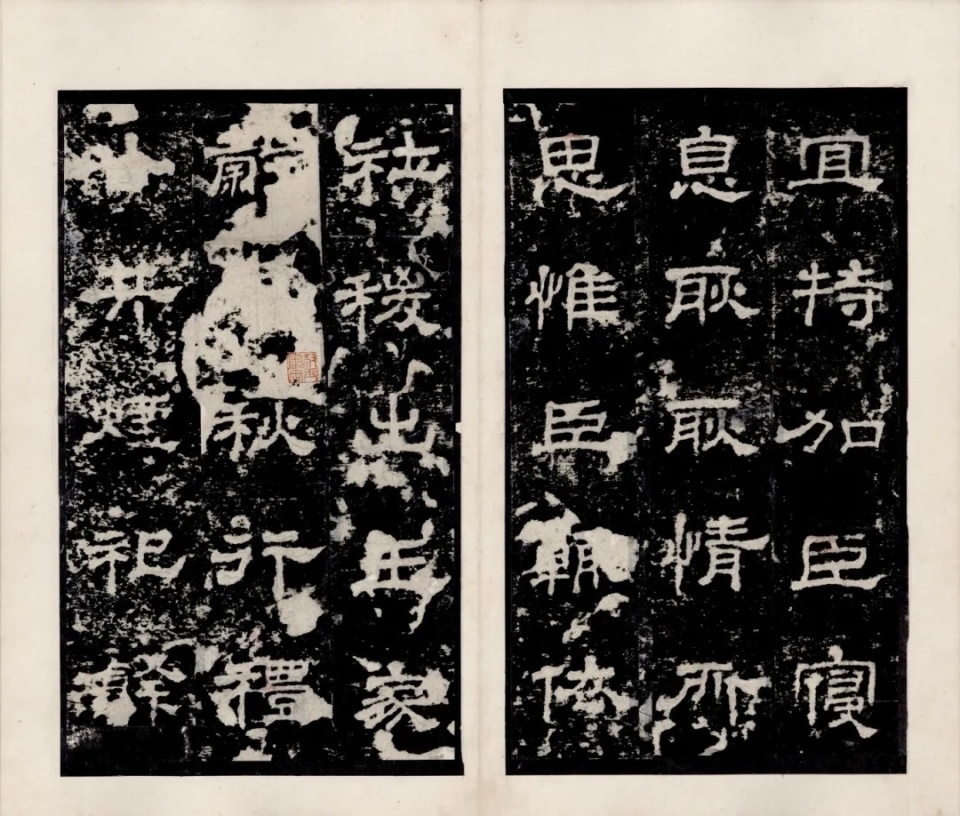 宜特加臣寑
息耿耿情所
思惟臣輒依
社稷出王家
穀秋行禮
共煙祀餘